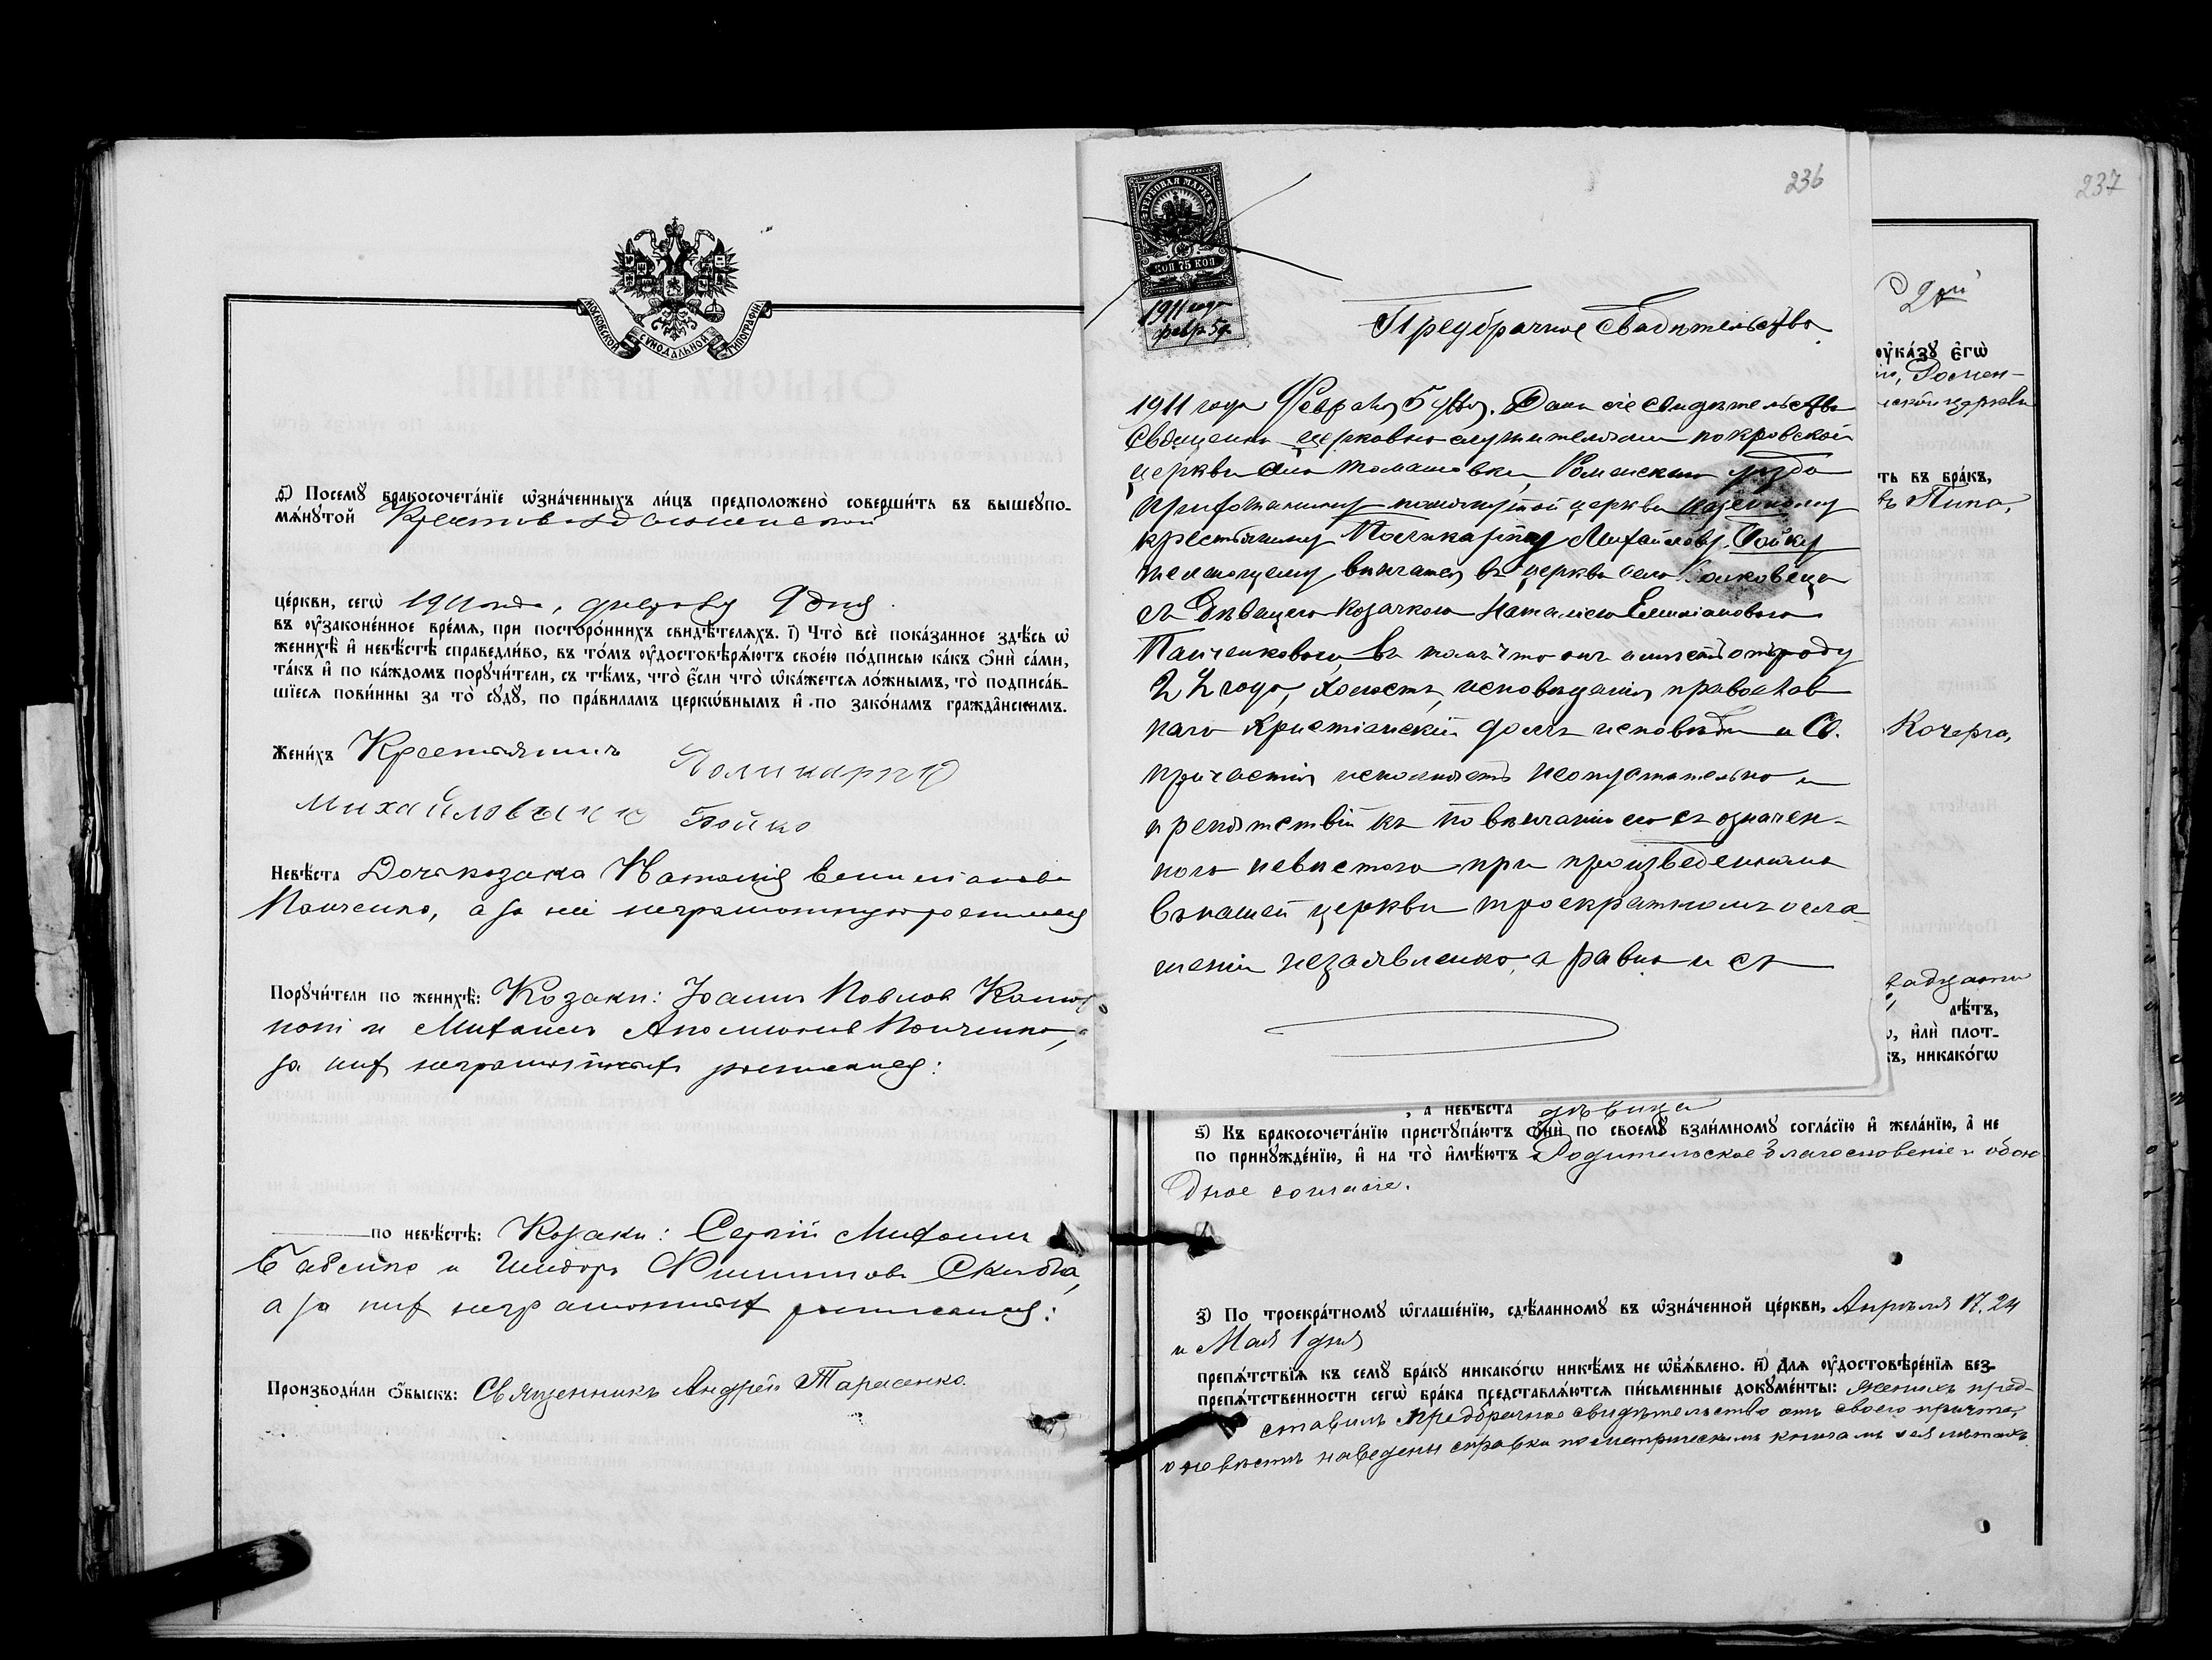 МОСКОВСКОЙ СѴНОДАЛЬНОЙ ТИПОГРАФІИ
д҃) Посемꙋ̀ бракосочета́нїе ѡ҆зна́ченныхъ ли́цъ предположено̀ соверши́ть въ вышеꙋпо-
мѧ́нꙋтой Крестовоздвиженской
це́ркви, сегѡ̀ 1911 года, февраля 9 дня
въ ᲂу҆законе́нное вре́мѧ, при посторо́ннихъ свидѣ́телѧхъ. і҃) Что̀ всѐ пока́занное здѣ́сь ѡ҆
женихѣ̀ и҆ невѣ́стѣ справедли́во, въ то́мъ ᲂу҆достовѣрѧ́ютъ свое́ю по́дписью ка́къ ѻ҆нѝ са́ми,
та́къ и҆ по ка́ждомъ порꙋчи́тели, съ тѣ́мъ, что̀ є҆́сли что̀ ѡ҆ка́жетсѧ ло́жнымъ, то̀ подписа́в-
шїесѧ пови́нны за то̀ сꙋдꙋ̀, по пра́виламъ церкѡ́внымъ и҆ по зако́намъ гражда̂нскимъ.
Жени́хъ Крестьянинъ Поликарпъ
Михайловичъ Бойко
Невѣ́ста Дочь козака Наталия Емилианова
Панченко, а за неё неграмотную росписался
Порꙋчи́тели по женихѣ̀: Козаки: Іоаннъ Павлов
и Михаилъ Панченко,
за них неграмотных росписался:
по невѣ́стѣ: Козаки: Сергій Михаил
Бабенко и Исидоръ Филиппов Скиба,
а за них неграмотных росписался:
Производи́ли ѻ҆́быскъ: Священникъ Андрей Тарасенко.
236
ГЕРБОВАЯ МАРКА
КОП 75 КОП
1911 года
февр. 5 д.
Предбрачное Свидетельство
1911 года Февраля 5 дня. Дано сіе свидѣтельство
Священно-церковно-служителями покровской
церкви села Томашовки, Роменскаго уѣзда
прихожанину помянутой церкви казенному
крестьянину Поликарпу Михайлову Бойку
желающему вѣнчатся въ церкви села
съ дѣвицею козачкою Наталіею Емиліановою
Панченковою въ томъ что онъ имѣетъ отъ роду
22 года, холостъ, исповѣданія православ
наго христіанскій долгъ исповѣди и Св.
причастія исполняетъ неопустительно и
препятствій къ повѣнчанію его съ означен-
ною невѣстою при произведенномъ
въ нашей церкви троекратномъ огла-
шеніи незаявлено, а равно и съ
237
2й
ᲂу҆ка́зꙋ є҆гѡ̀
Ромен-
ской церкви
ть въ бра́къ,
Пипа,
Кочерга,
двадцати
лѣ́тъ,
и҆лѝ плот-
никако́гѡ
, а҆ невѣ́ста дѣвица
ѕ҃) Къ бракосочета́нїю пристꙋпа́ютъ ѻ҆нѝ по своемꙋ̀ взаи́мномꙋ согла́сїю и҆ жела́нїю, а҆ не
по принꙋжде́нїю, и҆ на то̀ и҆мѣ́ютъ Родительское благословеніе и обою
дное согласіе.
з҃) По троекра́тномꙋ ѡ҆глаше́нїю, сдѣ́ланномꙋ въ ѡ҆зна́ченной це́ркви, Апрѣля 17, 24
и Мая 1 дня
препѧ́тствїѧ къ семꙋ̀ бра́кꙋ никако́гѡ никѣ́мъ не ѡ҆б̾ѧ́влено. и҃) Для ᲂу҆достовѣре́нїѧ без-
препѧ́тственности сегѡ̀ бра́ка представлѧ́ютсѧ пи́сьменные докꙋме́нты: женихъ пред-
ставилъ предбрачное свидѣтельство отъ своего причта,
о невѣстѣ наведены справки по метрическимъ книгамъ